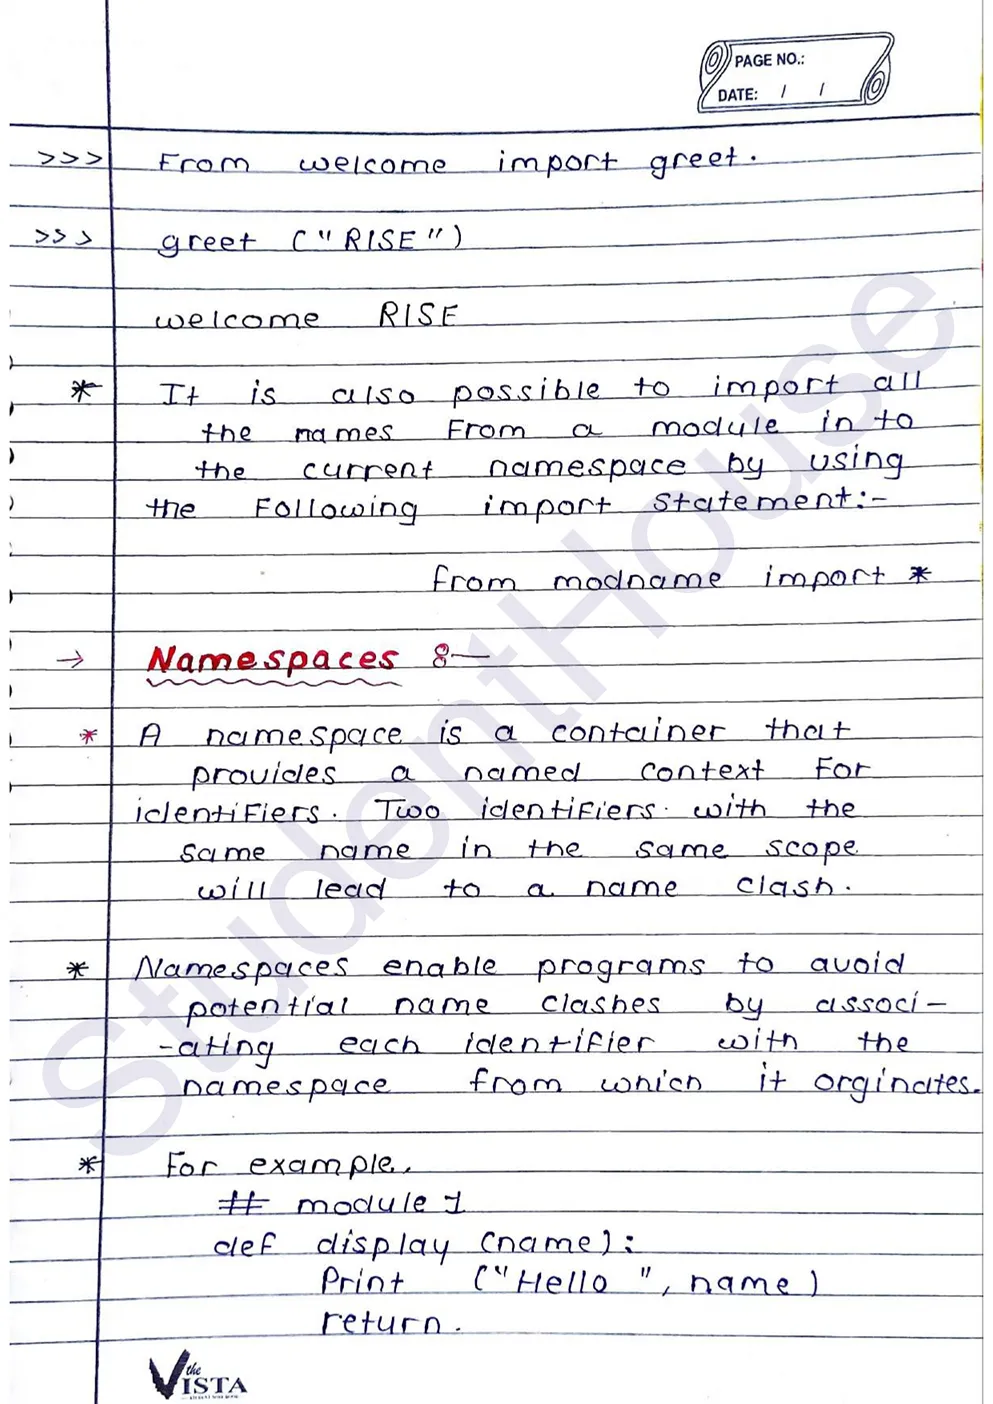 PAGE NO.:
DATE: / /
>>> From welcome import greet.
>>> greet ("RISE")
welcome RISE
* It is also possible to import all
the names From a module in to
the current namespace by using
the Following import statement:-
from modname import *
→ Namespaces :-
* A namespace is a container that
provides a named context For
identiFiers. Two identiFiers with the
same name in the same scope
will lead to a name clash.
* Namespaces enable programs to avoid
potential name clashes by associ-
-ating each identiFier with the
namespace from which it orginates.
* For example,
# module 1
deF display (name):
Print ("Hello ", name)
return.
the
VISTA
StudentHouse